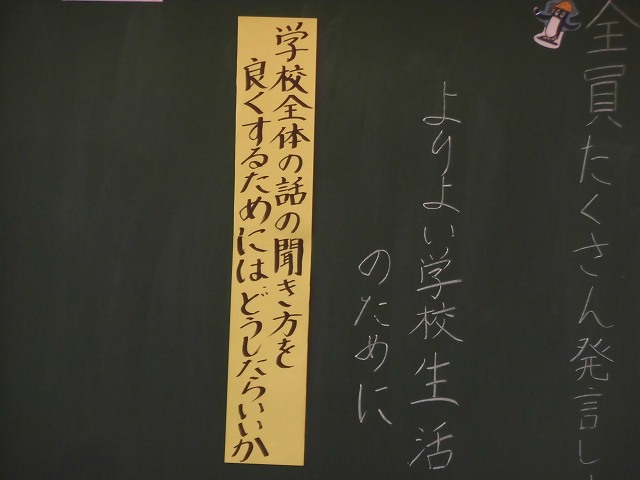 全員たくさん発言し
よりよい学校生活
のために
学校全体の話の聞き方を
良くするためにはどうしたらいいか